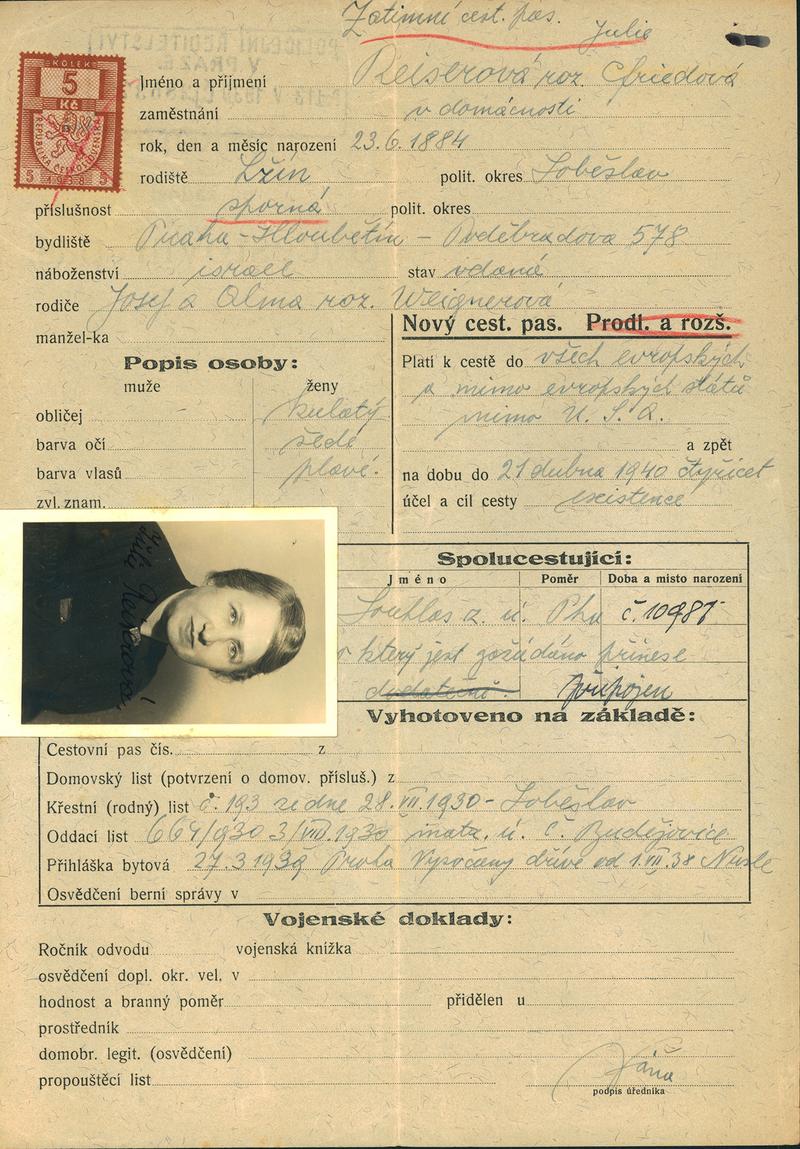 Zatimní cest. pas.
Julie
KOLEK
5
Kč
REPUBLIKA ČESKOSLOVENSKÁ
5 1938 5
Jméno a příjmení Reiserová roz. Friedová
zaměstnání v domácnosti
rok, den a měsíc narození 23.6.1884
rodiště Lžín polit. okres Soběslav
příslušnost sporná polit. okres
bydliště Praha-Hloubětín - Poděbradova 578
náboženství israel stav vdaná
rodiče Josef a Alma roz. Weignerová
manžel-ka
Nový cest. pas. Prodl. a rozš.
Popis osoby:
muže ženy
obličej kulatý
barva očí šedé
barva vlasů plavé.
zvl. znam.
Platí k cestě do všech evropských
a mimo evropských států
mimo U. S. A.
a zpět
na dobu do 21 dubna 1940 čtyřicet
účel a cíl cesty existence
Julie Reiserová
Spolucestující:
Jméno Poměr Doba a místo narození
Souhlas z. ú. Pha č. 10981
o který jest zažádáno přinese
dodatečně. připojen
Vyhotoveno na základě:
Cestovní pas čís. z
Domovský list (potvrzení o domov. přísluš.) z
Křestní (rodný) list č. 193 ze dne 28.VII.1930 - Soběslav
Oddací list 664/930 3/VIII.1930 matr. ú. Č. Budějovice
Přihláška bytová 27.3.1939 Praha Vysočany dříve od 1.VII.38 Nusle
Osvědčení berní správy v
Vojenské doklady:
Ročník odvodu vojenská knížka
osvědčení dopl. okr. vel. v
hodnost a branný poměr přidělen u
prostředník
domobr. legit. (osvědčení)
propouštěcí list
podpis úředníka